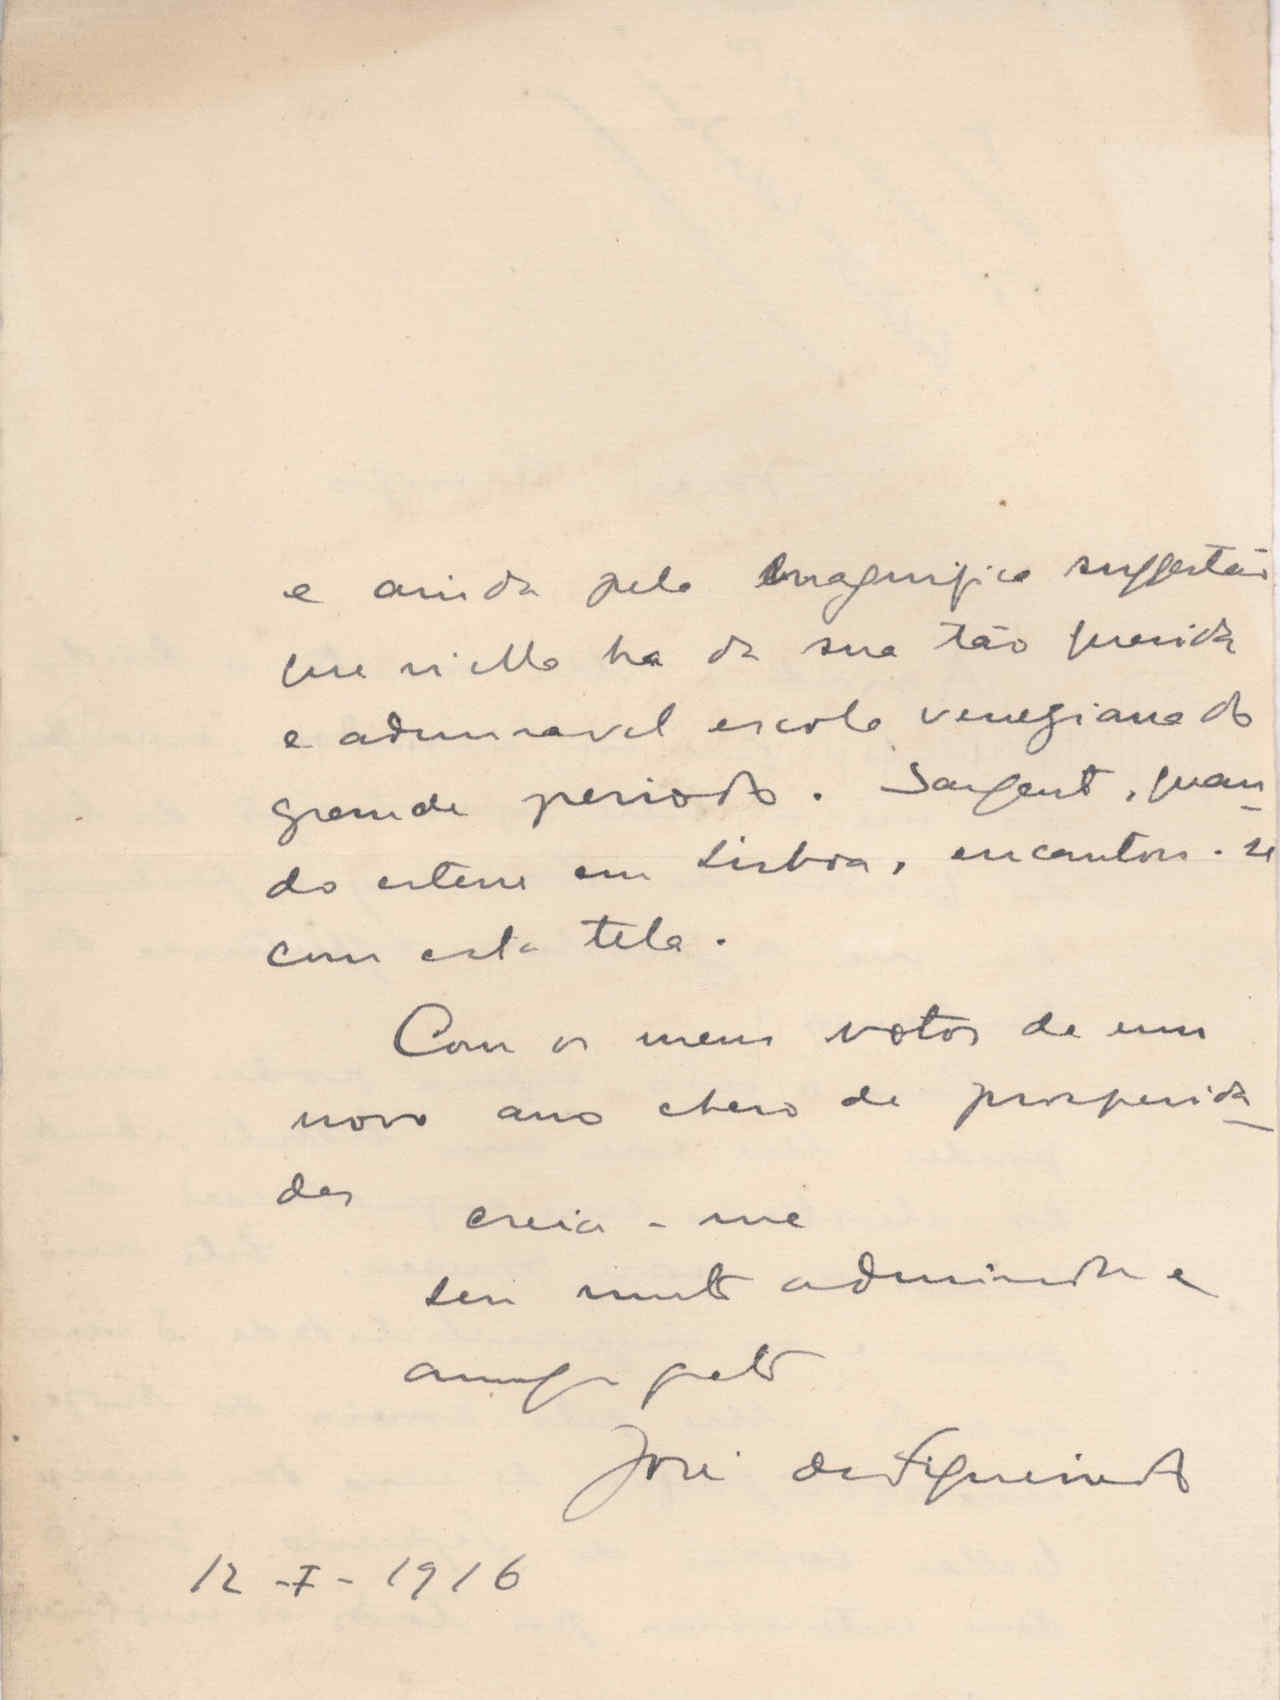 e ainda pela magnifica suggestão
que n'ella ha da sua tão querida
e admiravel escola veneziana do
grande periodo. Sargent, quan-
do esteve em Lisboa, encantou-se
com esta tela.
Com os meus votos de um
novo ano cheio de prosperida-
des
creia-me
seu muito admirador e
amigo grato
José de Figueiredo
12-I-1916